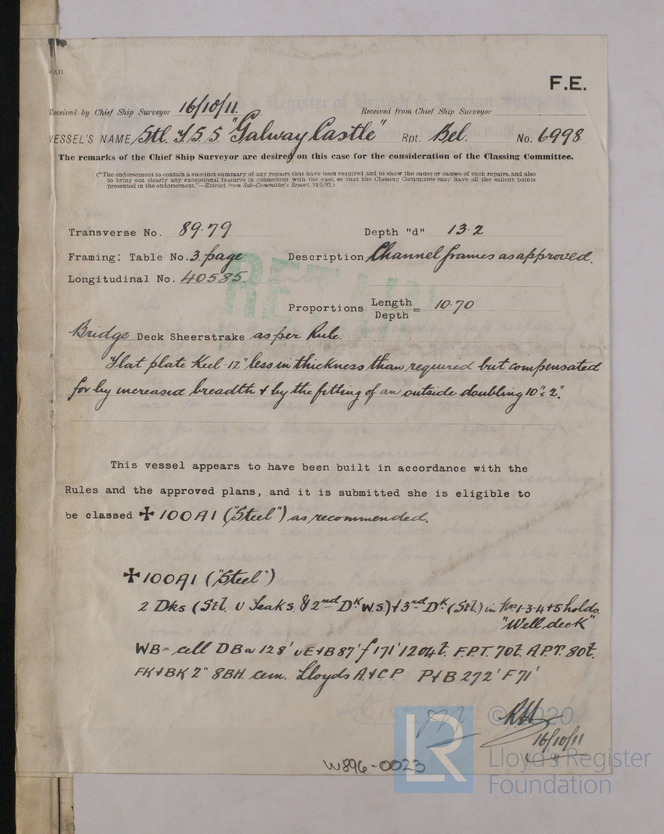 F.E.
Received by Chief Ship Surveyor 16/10/11 Received from Chief Ship Surveyor
VESSEL'S NAME Stl. T.S.S "Galway Castle" Rpt. Bel. No. 6998
The remarks of the Chief Ship Surveyor are desired on this case for the consideration of the Classing Committee.
("The endorsement to contain a succinct summary of any repairs that have been required and to show the cause or causes of such repairs, and also
to bring out clearly any exceptional features in connection with the case, so that the Classing Committee may have all the salient points
presented in the endorsement."—Extract from Sub-Committee's Report,
Transverse No. 89.79 Depth "d" 13.2
Framing: Table No. 3 page Description Channel frames as approved.
Longitudinal No. 40585
RETAIN
Proportions Length/Depth = 10.70
Bridge Deck Sheerstrake as per Rule.
Flat plate Keel 12" less in thickness than required but compensated
for by increased breadth & by the fitting of an outside doubling 10" x 2".
This vessel appears to have been built in accordance with the
Rules and the approved plans, and it is submitted she is eligible to
be classed ✠ 100A1 ("Steel") as recommended.
✠ 100A1 ("Steel")
2 Dks (Stl. & 2nd Dk W.S) & 3rd Dk (Stl.) in No 1.3.4+5 holds.
"Well deck"
WB= cell DBa 128' uE+B 87' f 171' 1204t. F.P.T. 70t. A.P.T. 80t.
FK+BK 2" 8BH cem. Lloyds A+CP P+B 272' F 71'
16/10/11
W896-0023
© 2020
LR
Lloyd's Register
Foundation